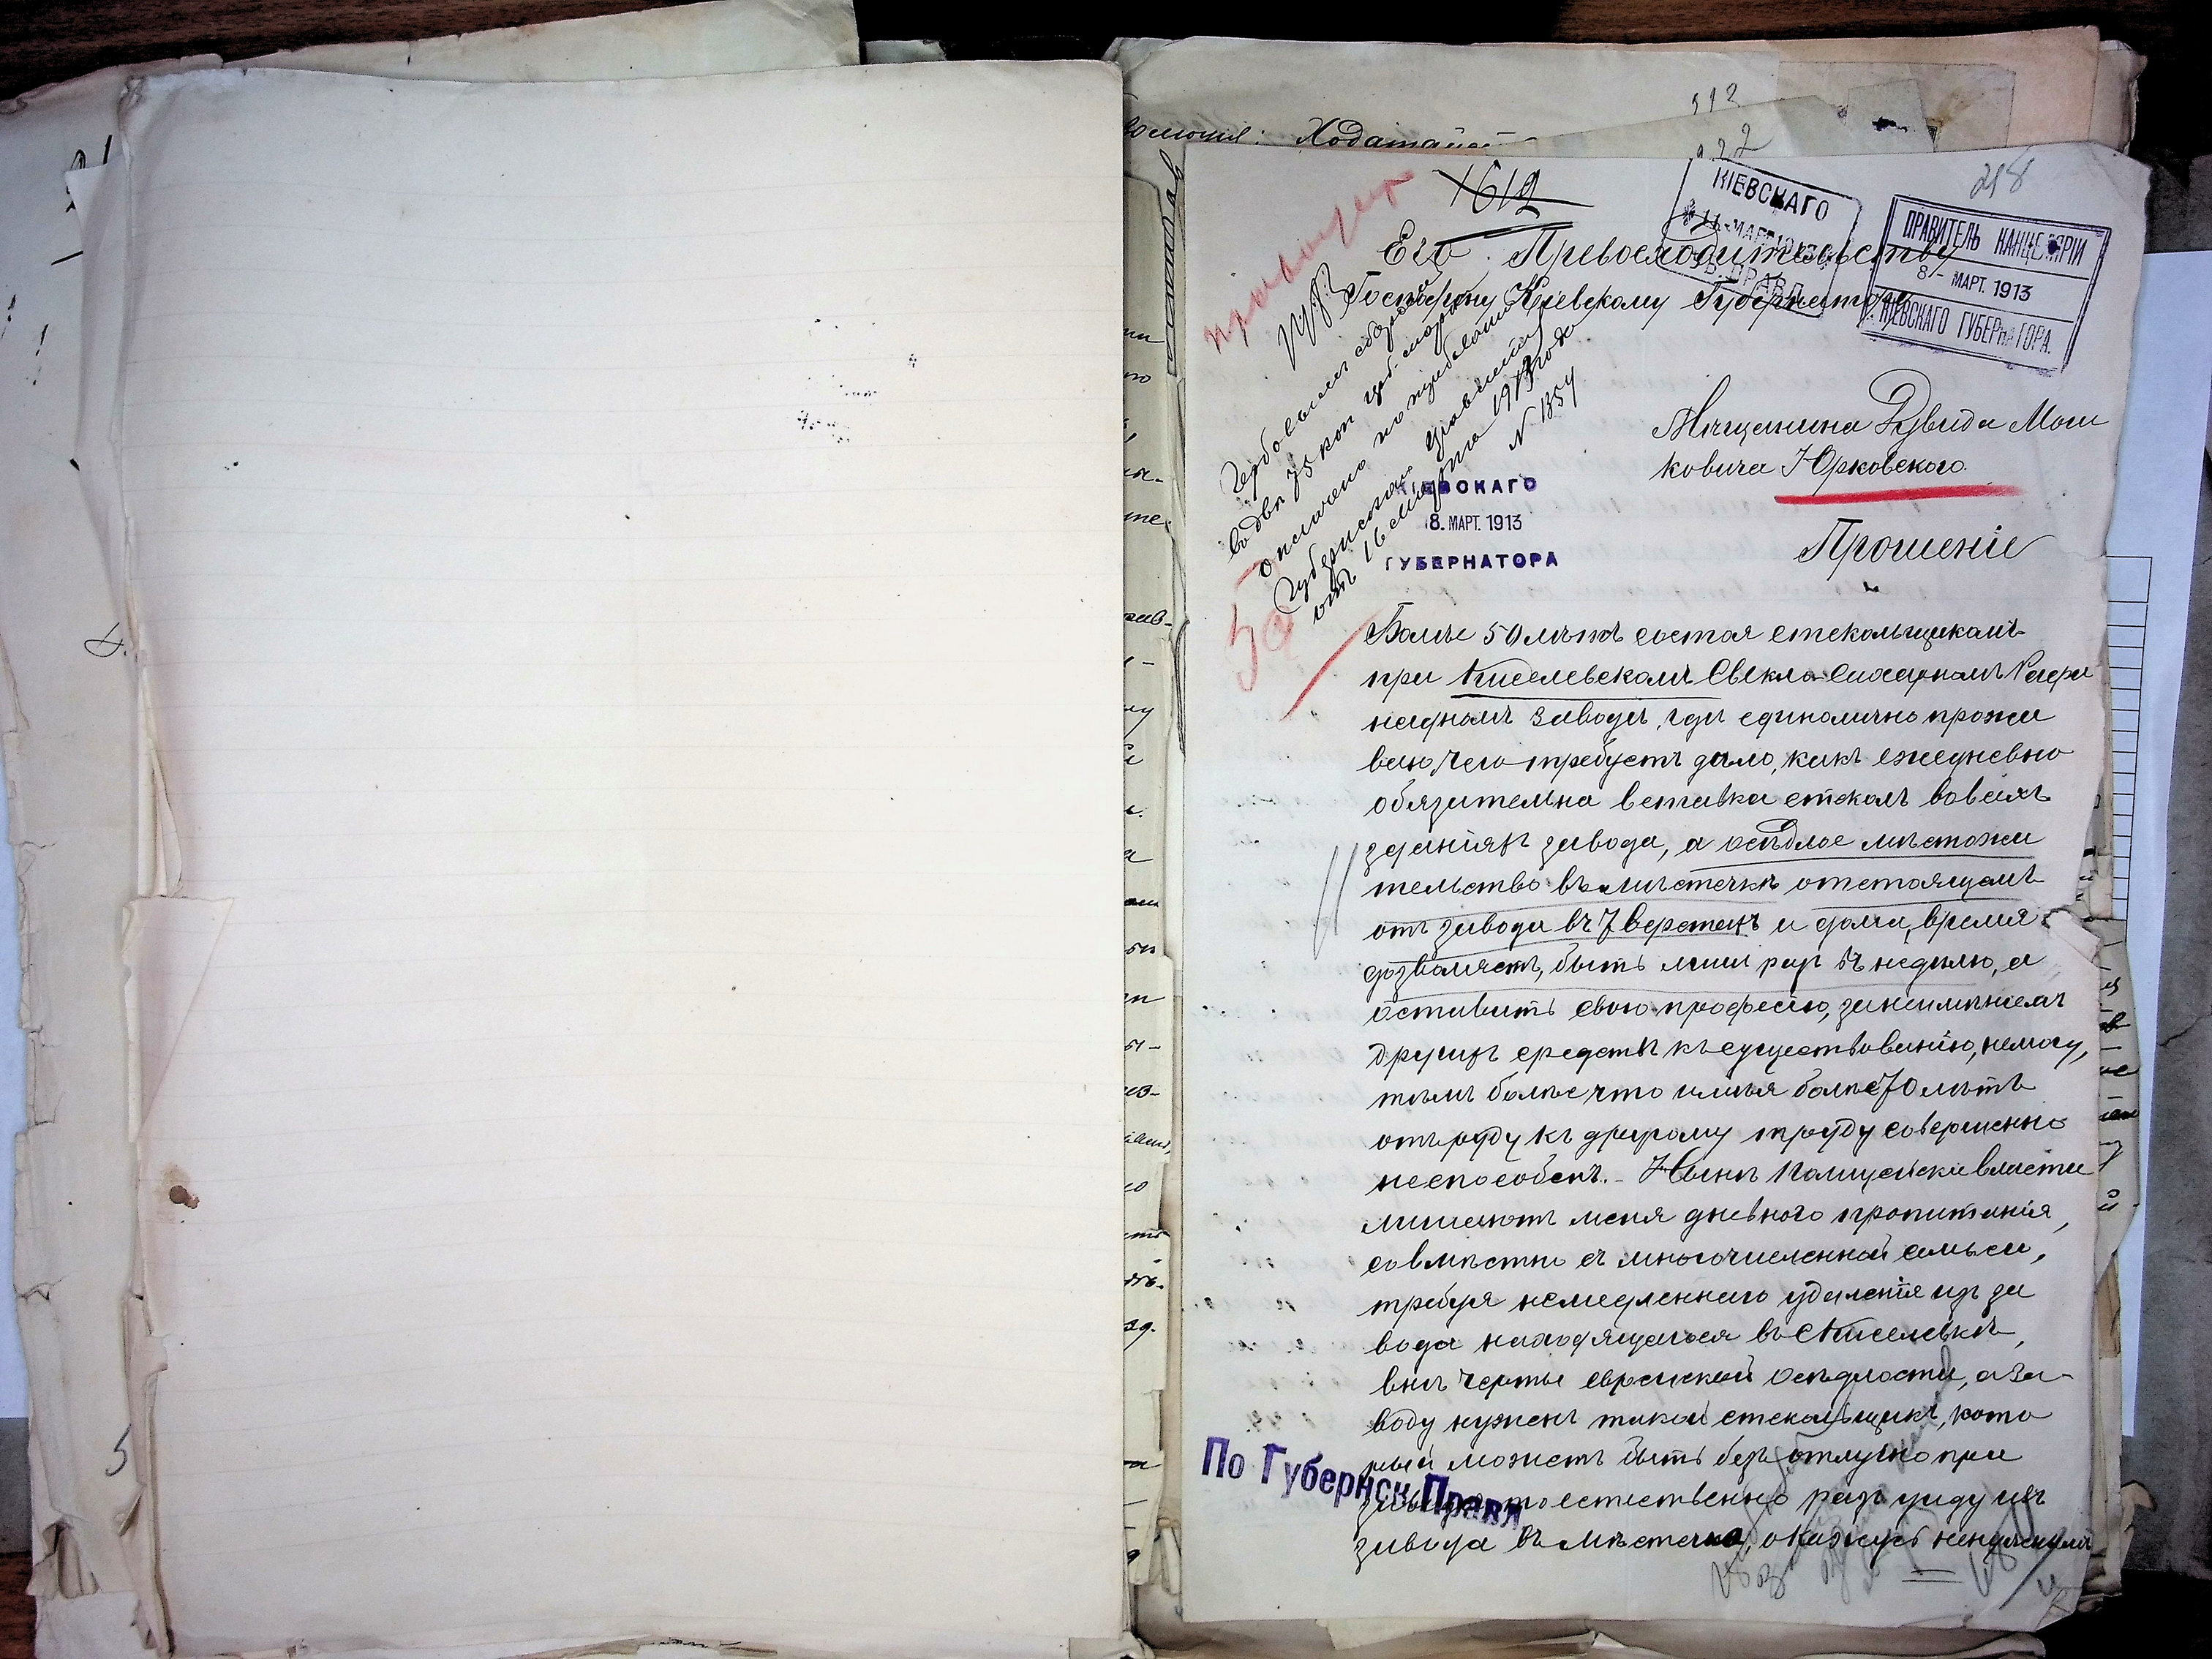 Ходатайст
218
1612
КІЕВСКАГО
ПРАВИТЕЛЬ КАНЦЕЛЯРІИ
8 - МАРТ. 1913
КІЕВСКАГО ГУБЕРНАТОРА.
Его Превосходительству
Господину Кіевскому Губернатору
Мѣщанина Дувида Мош
ковича Юрковскаго.
Гербовымъ сборомъ
въ два 75 коп
оплачено по требованію
Губернскаго Правленія
отъ 16 марта 1913 года
N 1354
КІЕВСКАГО
8. МАРТ. 1913
ГУБЕРНАТОРА
Прошеніе
Болѣе 50 лѣтъ состоя стекольщикомъ
при Киселевскомъ Свекло-Сахарномъ Рафи
надномъ заводѣ, гдѣ единолично прожи
ваю, чего требуетъ дѣло, какъ ежедневно
обязательна вставка стеколъ во всѣхъ
зданіяхъ завода, а осѣдлое мѣстожи
тельство въ мѣстечкѣ отстоящемъ
отъ завода въ 7 верстахъ и дома, время
дозволяетъ, быть лишь разъ въ недѣлю, а
оставить свою професію, за неимѣніемъ
другихъ средствъ къ существованію, немогу,
тѣмъ болѣе что имѣя болѣе 70 лѣтъ
отъ роду къ другому труду совершенно
неспособенъ. - Нынѣ Полицейскія власти
лишаютъ меня дневного пропитанія,
совмѣстно съ многочисленной семьей,
требуя немедленнаго удаленія изъ за
вода находящагося въ с. Киселевкѣ,
внѣ черты еврейской осѣдлости, а за-
воду нуженъ такой стекольщикъ, кото
рый можетъ быть безъотлучно при
заводѣ, то естественно разъ уйду изъ
завода въ мѣстечко, окажусь ненужнымъ
По Губернск. Правл.